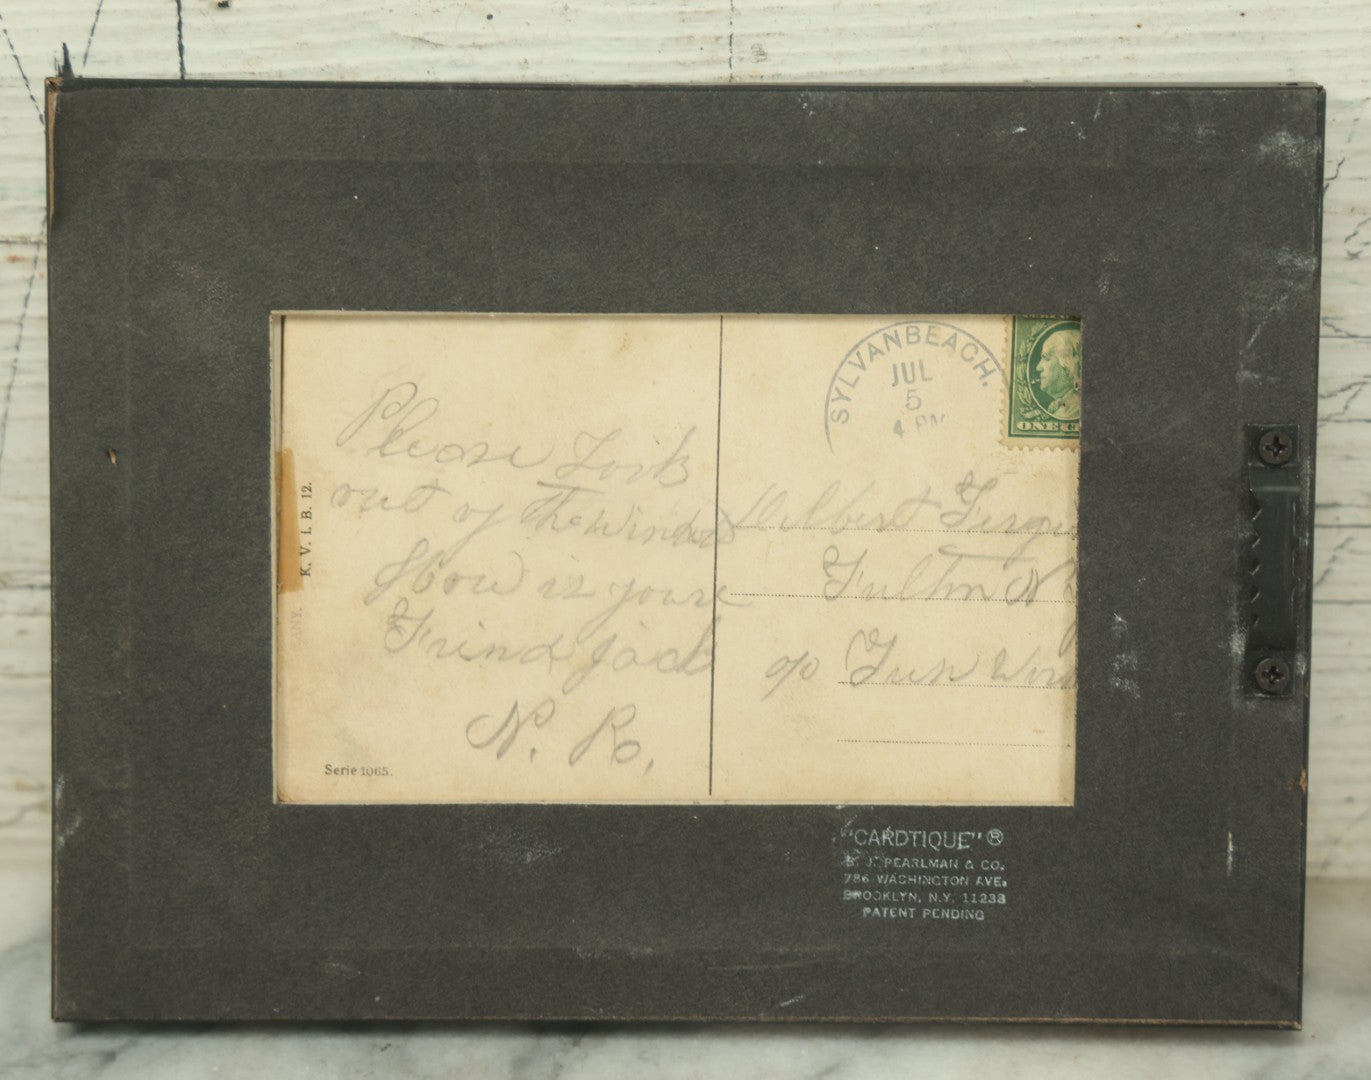 Please Look
out of the Window
How is youre
Frind Jack
N. R.
K. V. i. B. 12.
Serie 1065.
SYLVAN BEACH.
JUL
5
4 PM
ONE
Albert
Fulton N
c/o Gun
"CARDTIQUE" ®
PEARLMAN & CO.
786 WASHINGTON AVE.
BROOKLYN, N.Y. 11238
PATENT PENDING